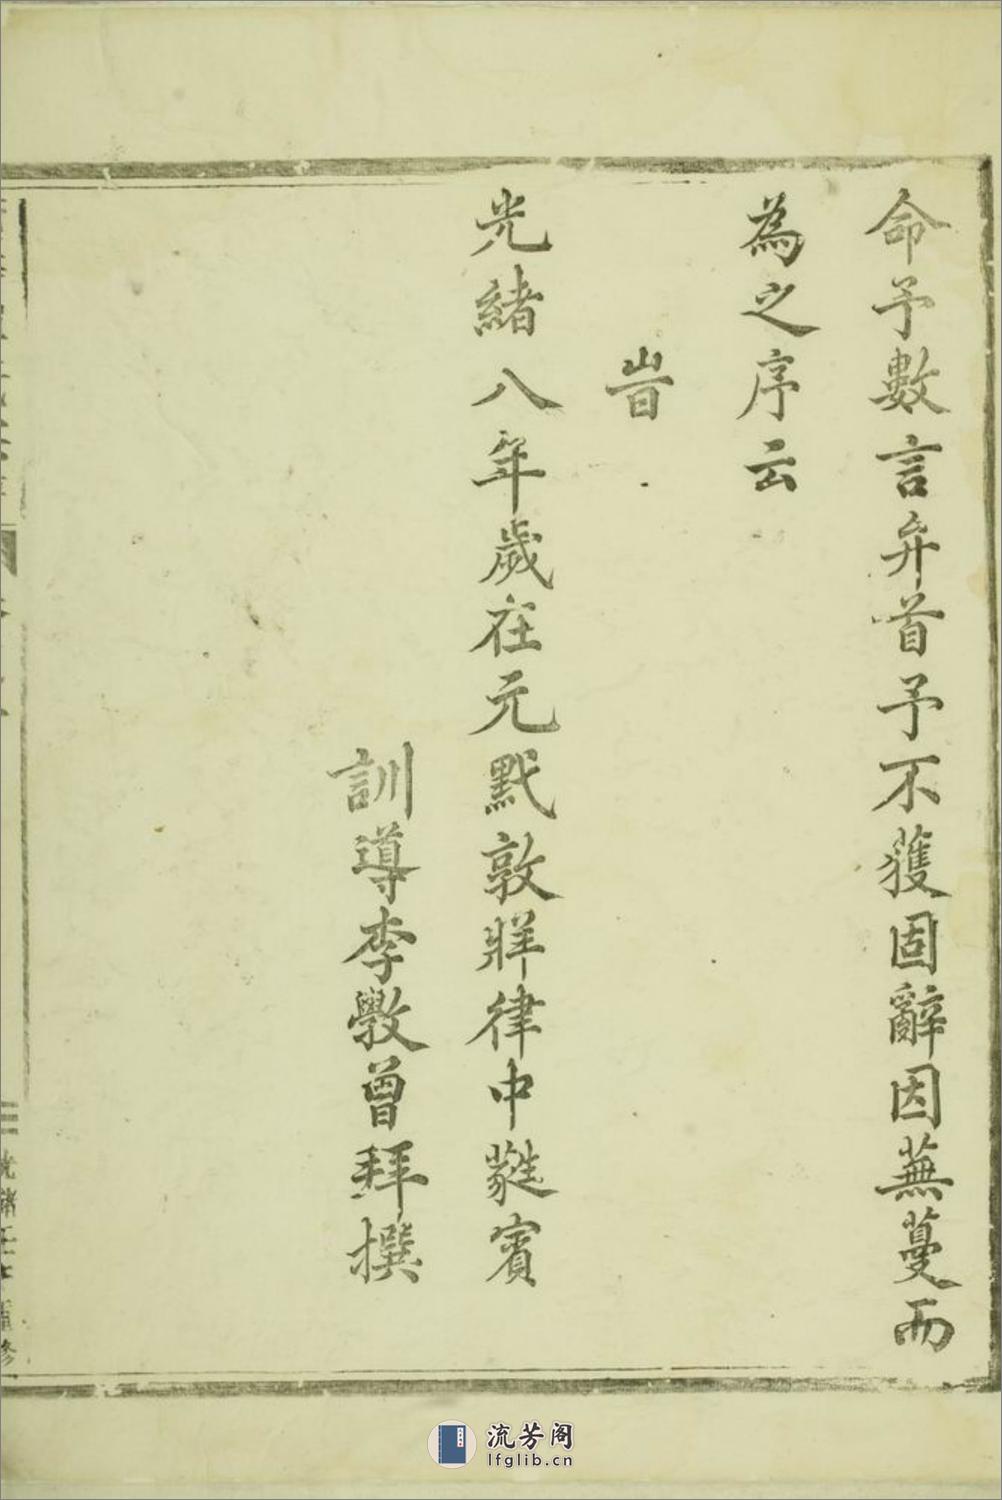 命予數言弁首予不獲固辭因蕪蔓而
為之序云
旹
光緒八年歲在元黓敦牂律中蕤賓
訓導李斆曾拜撰
光緒壬午重修
流芳阁
lfglib.cn